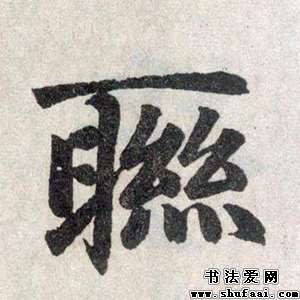 聮
书法爱网
www.shufaai.com